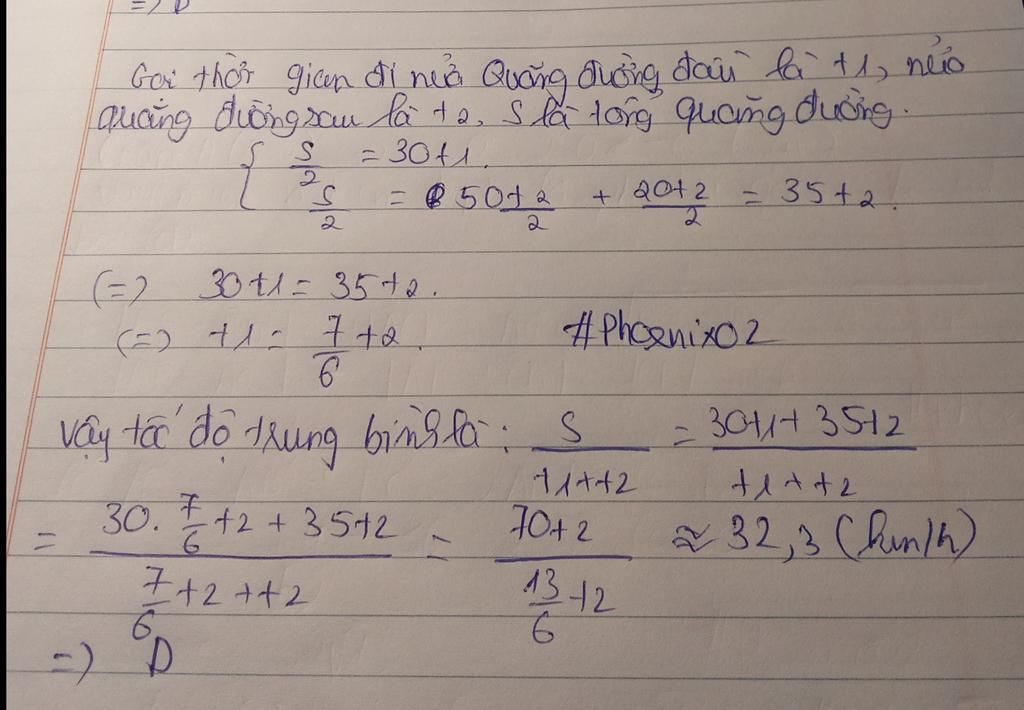 =) D
Gọi thời gian đi nửa Quãng đường đầu là t1, nửa
quãng đường sau là t2, S là tổng quãng đường.
{ S/2 = 30t1.
S/2 = 50t2/2 + 20t2/2 = 35t2.
(=) 30t1 = 35t2.
(=) t1 = 7/6 t2. #Phoenix02
Vậy tốc độ trung bình là: S/(t1+t2) = (30t1+35t2)/(t1+t2)
= (30.7/6 t2 + 35t2)/(7/6 t2 + t2) = 70t2/(13/6 t2) ≈ 32,3 (km/h)
=) D